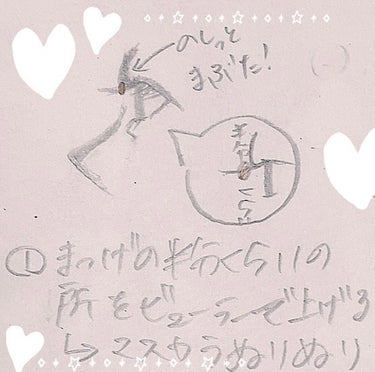 のしっと
まぶた!
半分くらい
① まつげの半分くらいの
所をビューラーで上げる
↳ マスカラぬりぬり